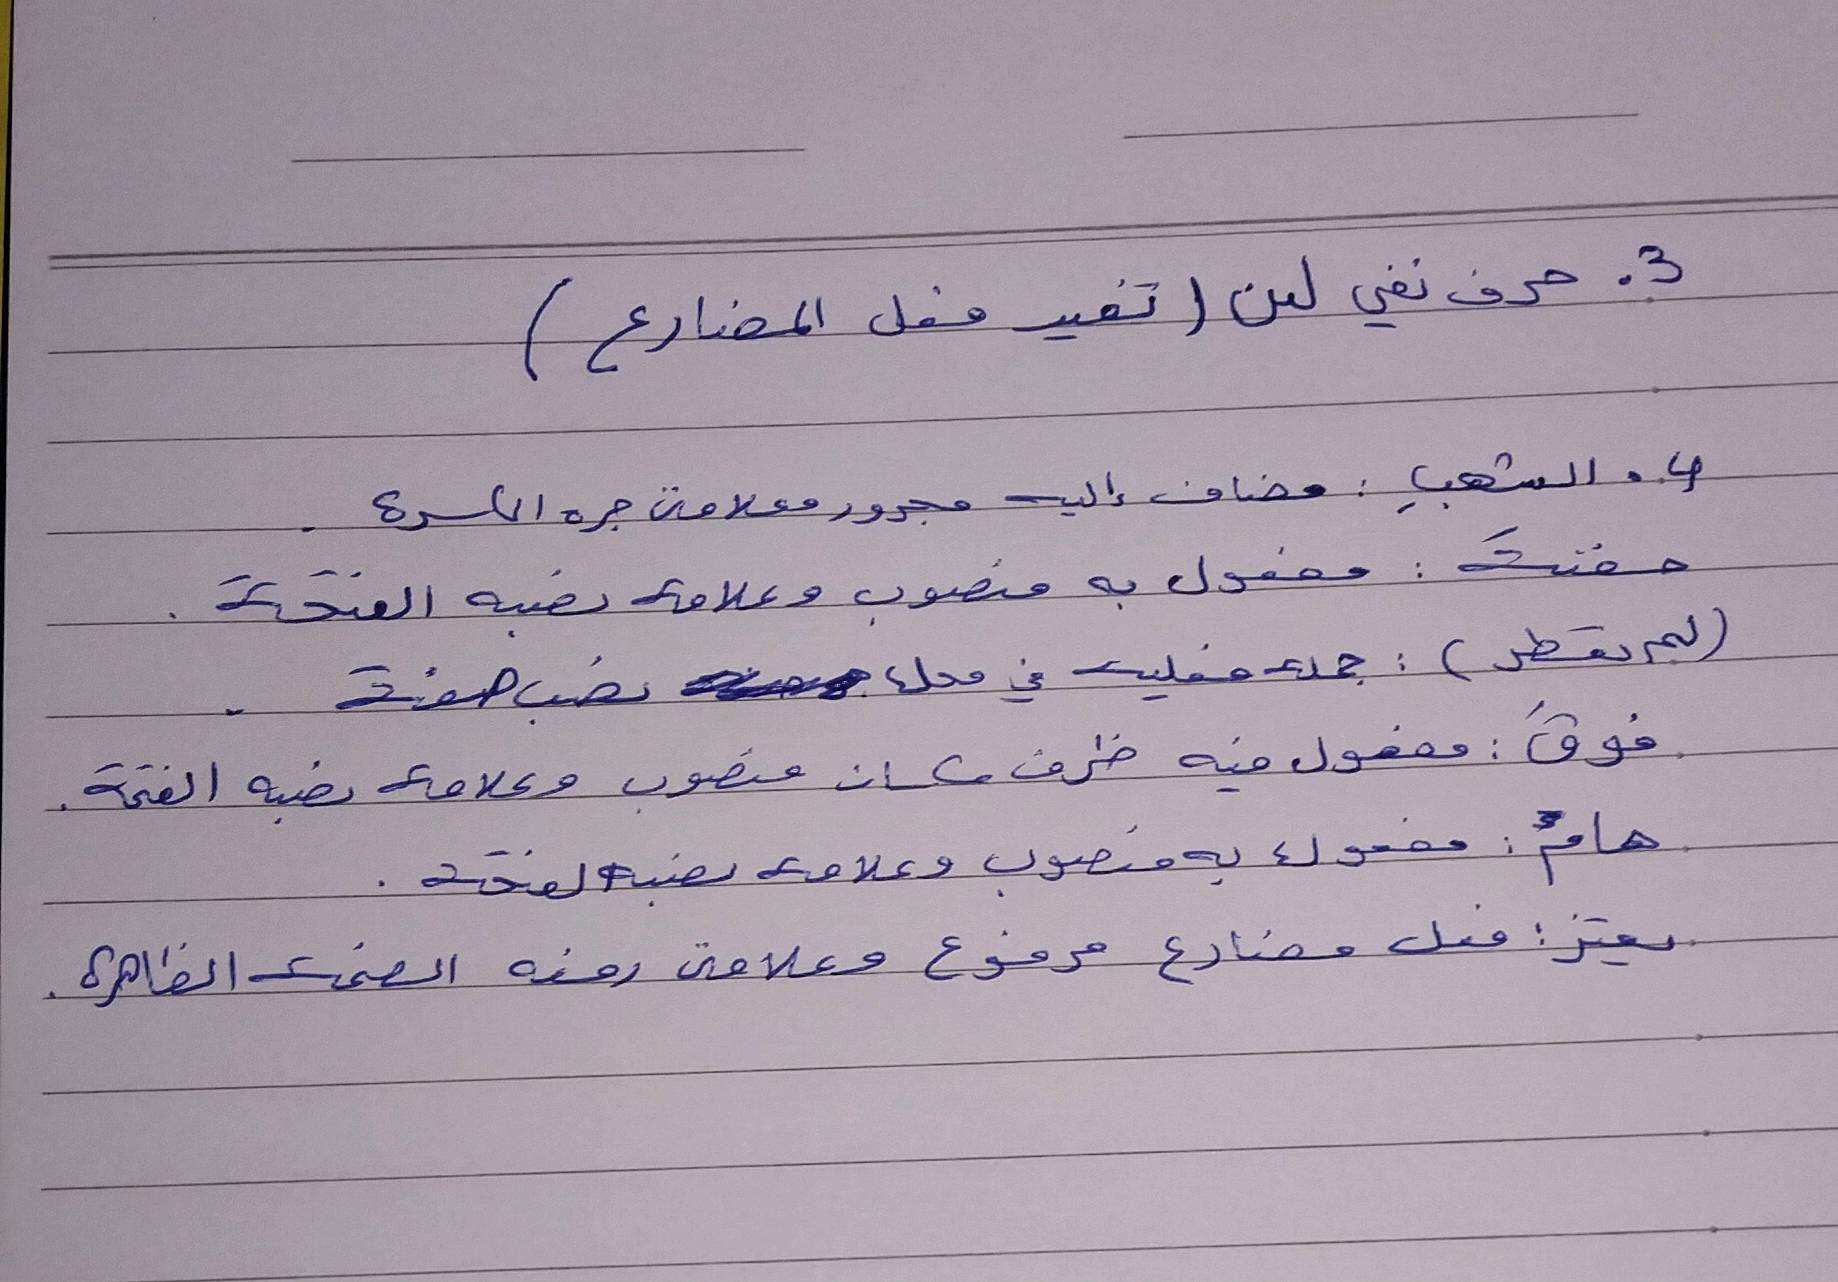 3. حرف نفي لن (تغير فعل المضارع)
4. الشهبِ : مضاف إليه مجرور وعلامة جره الكسرة .
حفنةً : مفعول به منصوب وعلامة نصبه الفتحة .
(لم يقطر) : جملة فعلية في محل نصب صفة .
فوقَ : مفعول فيه ظرف مكان منصوب وعلامة نصبه الفتحة .
هامَ : مفعول به منصوب وعلامة نصبه لفتحة .
يعتز : فعل مضارع مرفوع وعلامة رفعه الضمة الظاهرة .